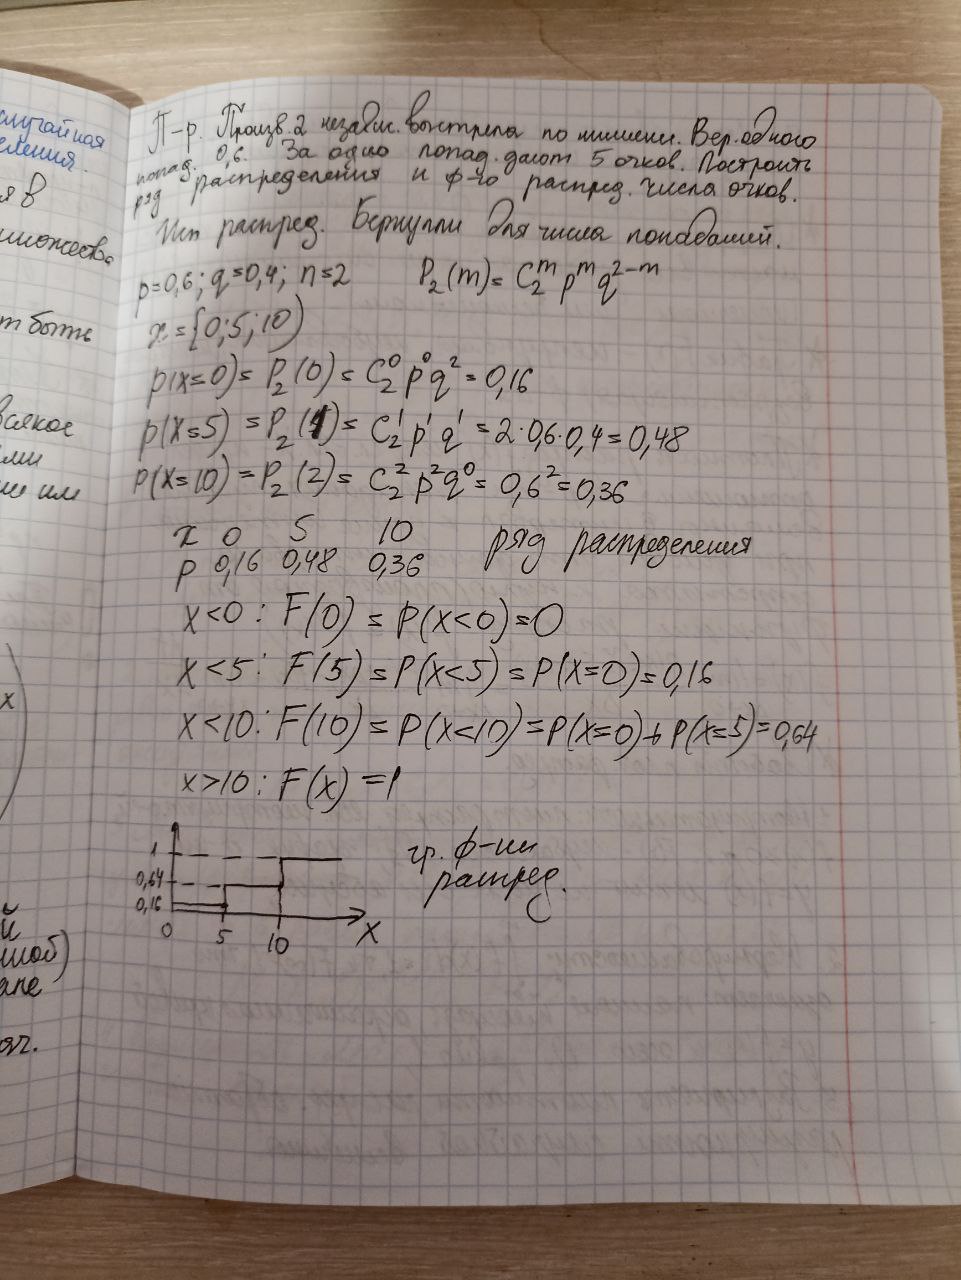 случайная
еления.
я в
множество
т быть
всякое
ми
ше или
x
й
шой)
ане
П-р. Произв. 2 независ. выстрела по мишени. Вер. одного
попад. 0,6. За одно попад. дают 5 очков. Построить
ряд распределения и ф-ю распред. числа очков.
Исп распред. Бернулли для числа попаданий.
p=0,6; q=0,4; n=2 P₂(m)= C₂ᵐ pᵐ q²⁻ᵐ
x={0;5;10)
p(x=0)= P₂(0)= C₂⁰ p⁰ q² = 0,16
p(x=5) = P₂(1)= C₂¹ p¹ q¹ = 2·0,6·0,4=0,48
P(x=10) = P₂(2)= C₂² p² q⁰ = 0,6² = 0,36
x 0 5 10 ряд распределения
p 0,16 0,48 0,36
x<0 : F(0) = P(x<0)=0
x<5 : F(5)= P(x<5) = P(x=0)=0,16
x<10 : F(10)= P(x<10)=P(x=0)+P(x=5)=0,64
x>10 : F(x) =1
1
гр. ф-ии
0,64
распред.
0,16
0 5 10 x